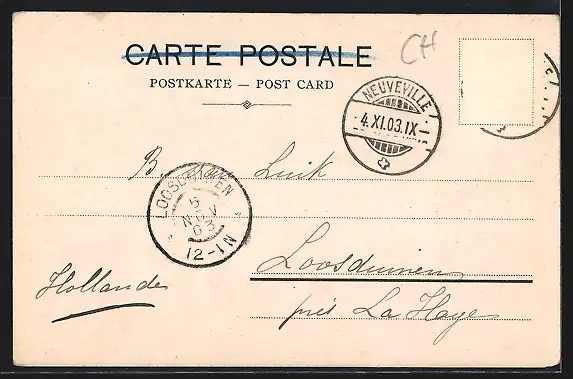 CARTE POSTALE
CH
POSTKARTE — POST CARD
NEUVEVILLE
4. XI. 03. IX —
B. van Luik
LOOSDUINEN
5
NOV
03
12-1N
Loosduinen
Hollande
près La Haye